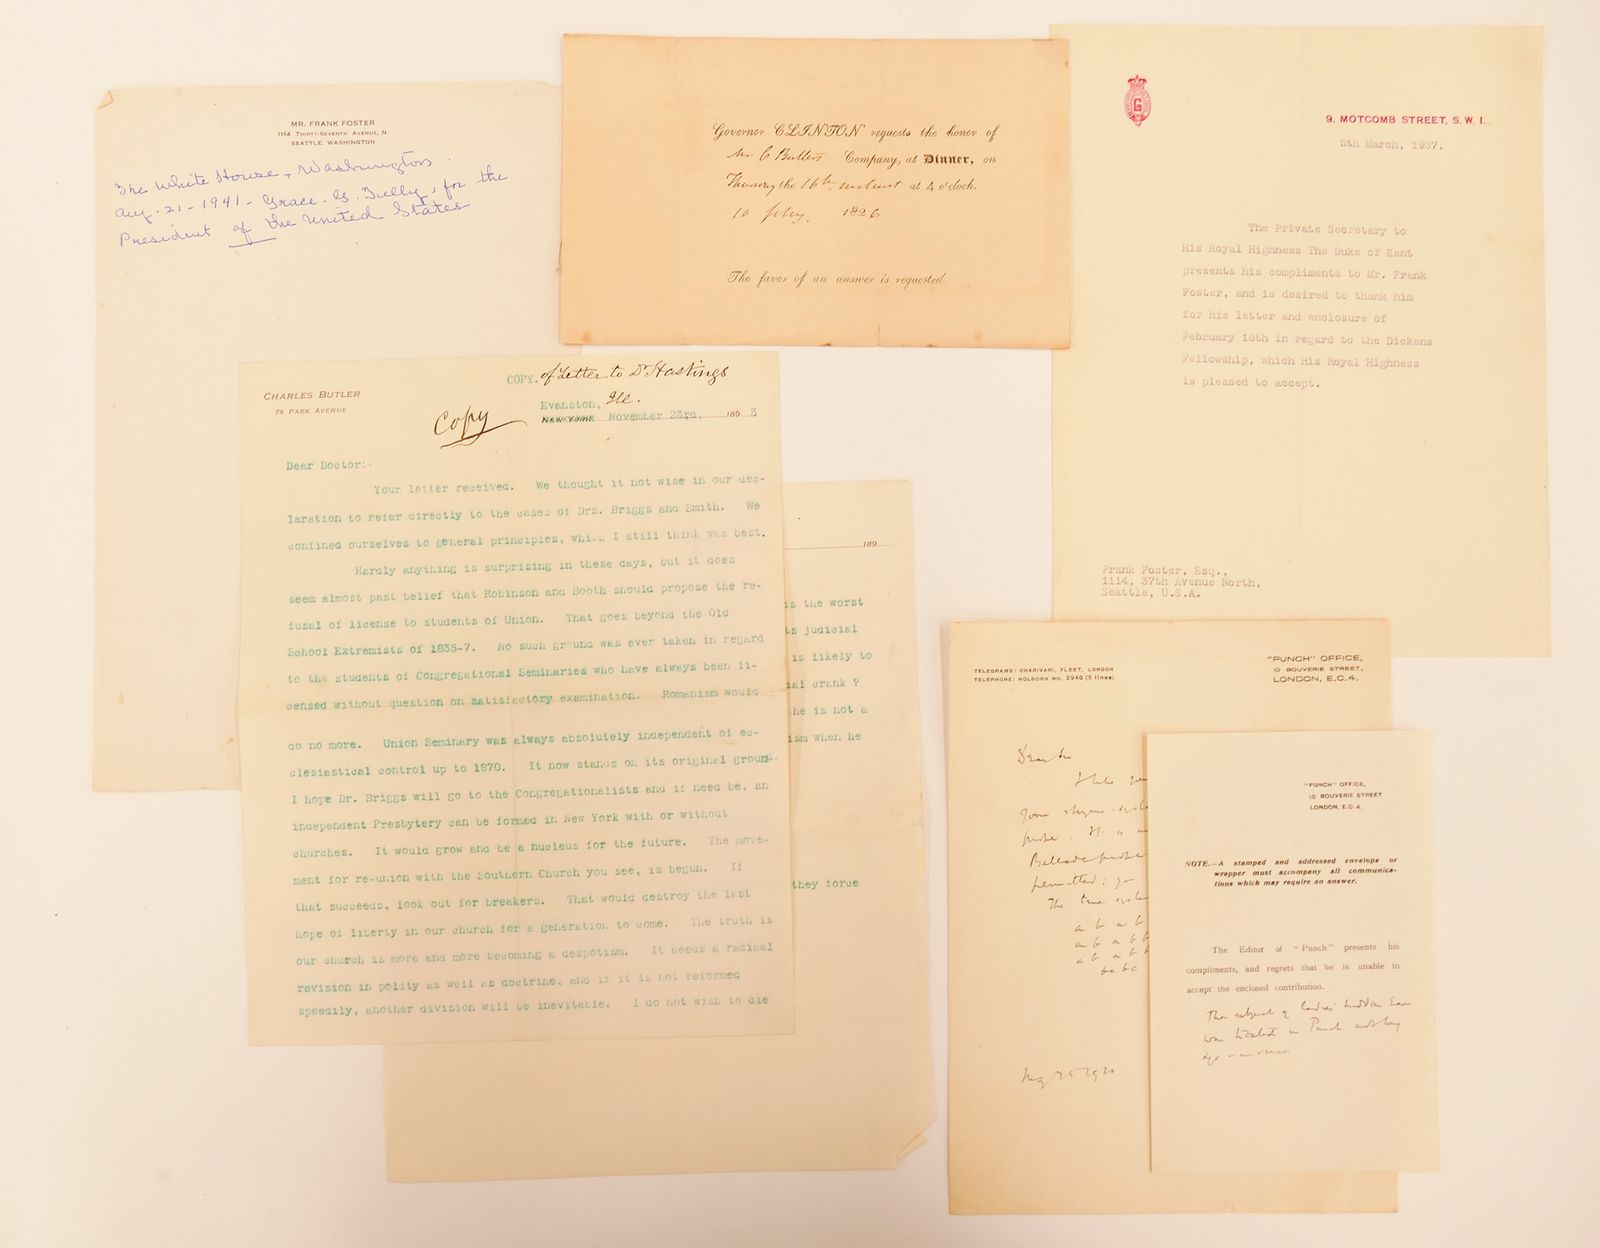 MR. FRANK FOSTER
1114 THIRTY-SEVENTH AVENUE, N.
SEATTLE, WASHINGTON
The White House, Washington
Aug. 21 - 1941 - Grace G. Tully, for the
President of the United States
Governor CLINTON requests the honor of
Mr C Butler's Company, at Dinner, on
Thursday the 16th instant at 4 o'clock.
10 feby. 1826
The favor of an answer is requested.
G
9, MOTCOMB STREET, S.W.1.
5th March, 1937.
The Private Secretary to
His Royal Highness The Duke of Kent
presents his compliments to Mr. Frank
Foster, and is desired to thank him
for his letter and enclosure of
February 18th in regard to the Dickens
Fellowship, which His Royal Highness
is pleased to accept.
Frank Foster, Esq.,
1114, 37th Avenue North,
Seattle, U.S.A.
CHARLES BUTLER
78 PARK AVENUE
COPY. of Letter to Dr Hastings
Copy
Evanston, Ill.
NEW YORK November 23rd, 1893
Dear Doctor:-
Your letter received. We thought it not wise in our dec-
laration to refer directly to the cases of Drs. Briggs and Smith. We
confined ourselves to general principles, which I still think was best.
Hardly anything is surprising in these days, but it does
seem almost past belief that Robinson and Booth should propose the re-
fusal of license to students of Union. That goes beyond the Old
School Extremists of 1835-7. No such ground was ever taken in regard
to the students of Congregational Seminaries who have always been li-
censed without question on satisfactory examination. Romanism would
do no more. Union Seminary was always absolutely independent of ec-
clesiastical control up to 1870. It now stands on its original ground.
I hope Dr. Briggs will go to the Congregationalists and if need be, an
independent Presbytery can be formed in New York with or without
churches. It would grow and be a nucleus for the future. The move-
ment for re-union with the Southern Church you see, is begun. If
that succeeds, look out for breakers. That would destroy the last
hope of liberty in our church for a generation to come. The truth is
our church is more and more becoming a despotism. It needs a radical
revision in polity as well as doctrine, and if it is not reformed
speedily, another division will be inevitable. I do not wish to die
189
is the worst
ts judicial
is likely to
ial crank ?
he is not a
ism when he
they force
TELEGRAMS: CHARIVARI, FLEET, LONDON
TELEPHONE: HOLBORN NO. 2949 (5 lines)
"PUNCH" OFFICE,
10 BOUVERIE STREET,
LONDON, E.C.4.
Dear Sir
I like
Your rhyme-
It is
Ballade
permitted;
The true
a b a b
a b a b b
a b a b b
b c b c
1920
"PUNCH" OFFICE,
10 BOUVERIE STREET
LONDON, E.C.4.
NOTE.—A stamped and addressed envelope or
wrapper must accompany all communica-
tions which may require an answer.
The Editor of "Punch" presents his
compliments, and regrets that he is unable to
accept the enclosed contribution.
The subject of ladies' hidden Ears
was treated in Punch not long
ago